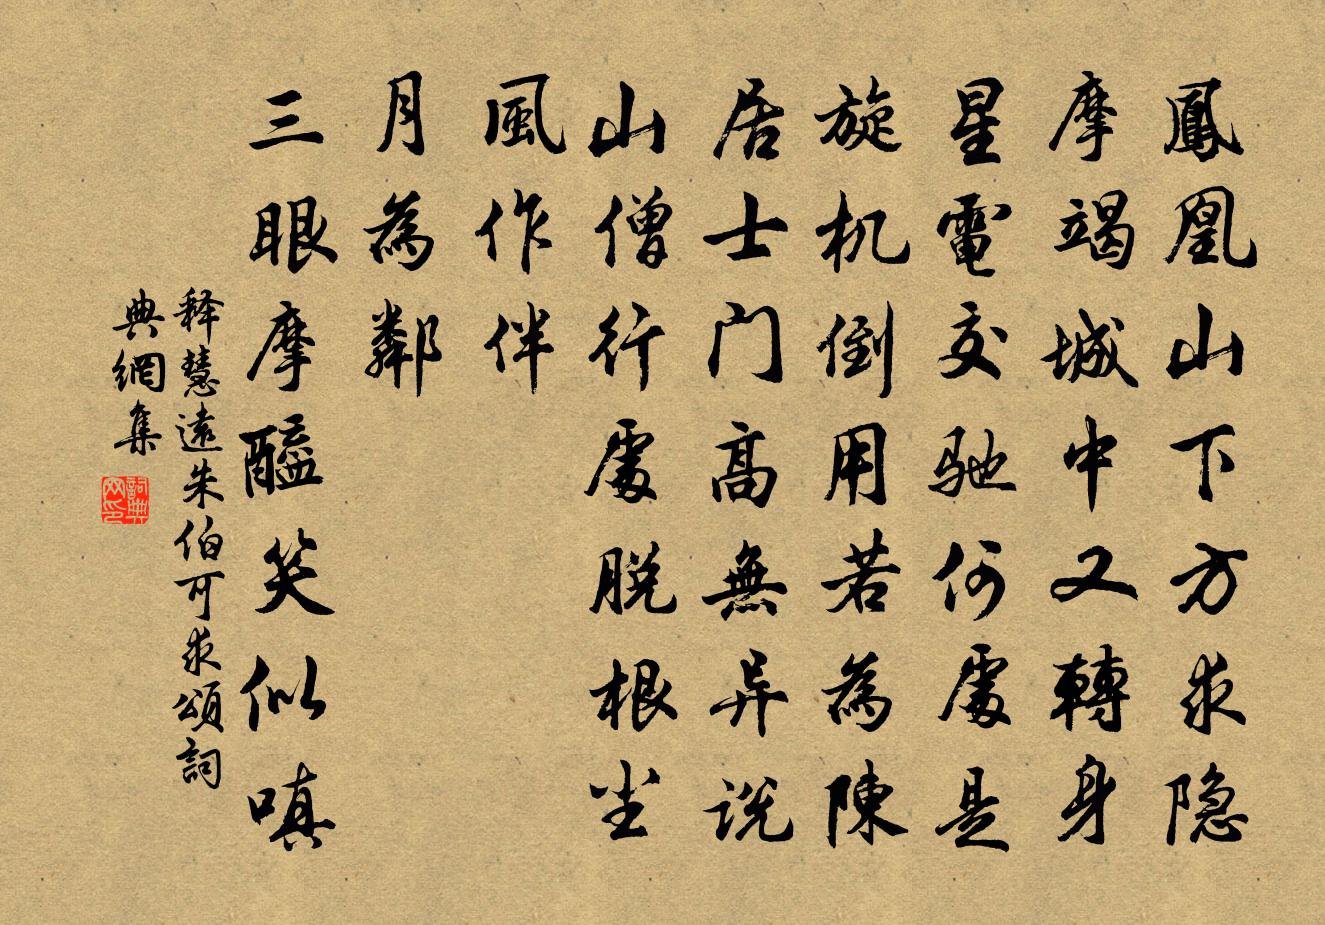 鳳凰山下方求隐
摩竭城中又轉身
星電交驰何處是
旋机倒用若為陳
居士门高無异说
山僧行處脱根尘
風作伴
月為鄰
三眼摩醯笑似嗔
释慧遠朱伯可求頌詞
典網集
詞典网印